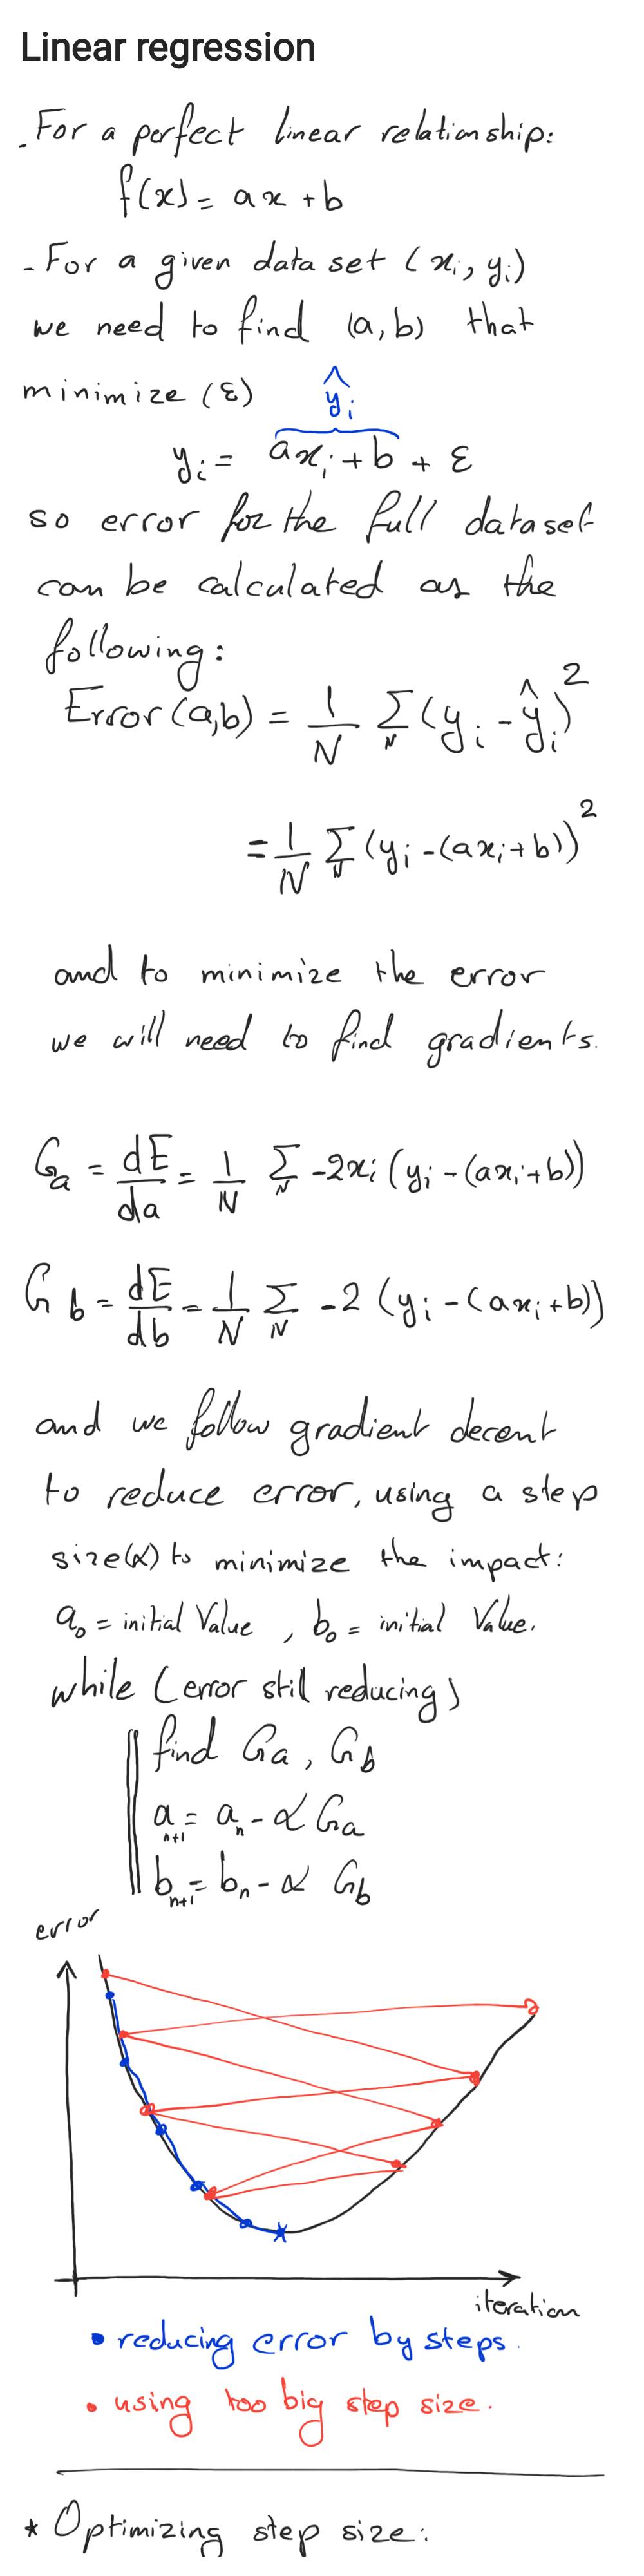 Linear regression
. For a perfect linear relationship:
f(x) = ax + b
- For a given data set (xi, yi)
we need to find (a, b) that
minimize (ε) ŷi
yi = axi + b + ε
so error for the full dataset
can be calculated as the
following:
Error(a,b) = 1/N ΣN (yi - ŷi)²
= 1/N ΣN (yi - (axi + b))²
and to minimize the error
we will need to find gradients.
Ga = dE/da = 1/N ΣN -2xi (yi - (axi + b))
Gb = dE/db = 1/N ΣN -2 (yi - (axi + b))
and we follow gradient decent
to reduce error, using a step
size(α) to minimize the impact:
a0 = initial Value , b0 = initial Value.
while (error still reducing)
find Ga, Gb
an+1 = an - α Ga
bn+1 = bn - α Gb
error
iteration
• reducing error by steps.
• using too big step size.
* Optimizing step size: